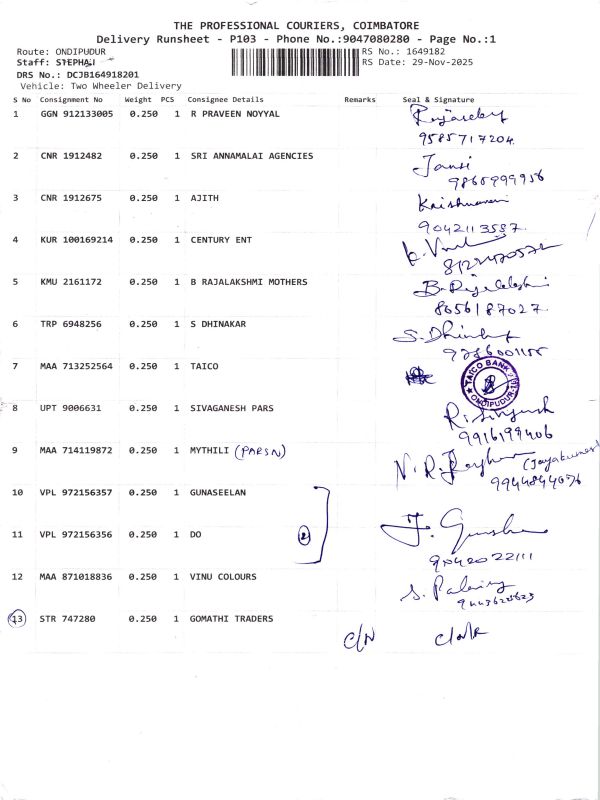 THE PROFESSIONAL COURIERS, COIMBATORE
Delivery Runsheet - P103 - Phone No.:9047080280 - Page No.:1
Route: ONDIPUDUR RS No.: 1649182
Staff: STEPHAI RS Date: 29-Nov-2025
DRS No.: DCJB164918201
Vehicle: Two Wheeler Delivery
S No Consignment No Weight PCS Consignee Details Remarks Seal & Signature
1 GGN 912133005 0.250 1 R PRAVEEN NOYYAL
9585717204
2 CNR 1912482 0.250 1 SRI ANNAMALAI AGENCIES Jansi
9865999956
3 CNR 1912675 0.250 1 AJITH
9042113537
4 KUR 100169214 0.250 1 CENTURY ENT
5 KMU 2161172 0.250 1 B RAJALAKSHMI MOTHERS
8056187027
6 TRP 6948256 0.250 1 S DHINAKAR
7 MAA 713252564 0.250 1 TAICO TAICO BANK ONDIPUDUR
8 UPT 9006631 0.250 1 SIVAGANESH PARS
9916199406
9 MAA 714119872 0.250 1 MYTHILI (PARSN)
9944844076
10 VPL 972156357 0.250 1 GUNASEELAN
11 VPL 972156356 0.250 1 DO 2
9042022111
12 MAA 871018836 0.250 1 VINU COLOURS
13 STR 747280 0.250 1 GOMATHI TRADERS
C/N